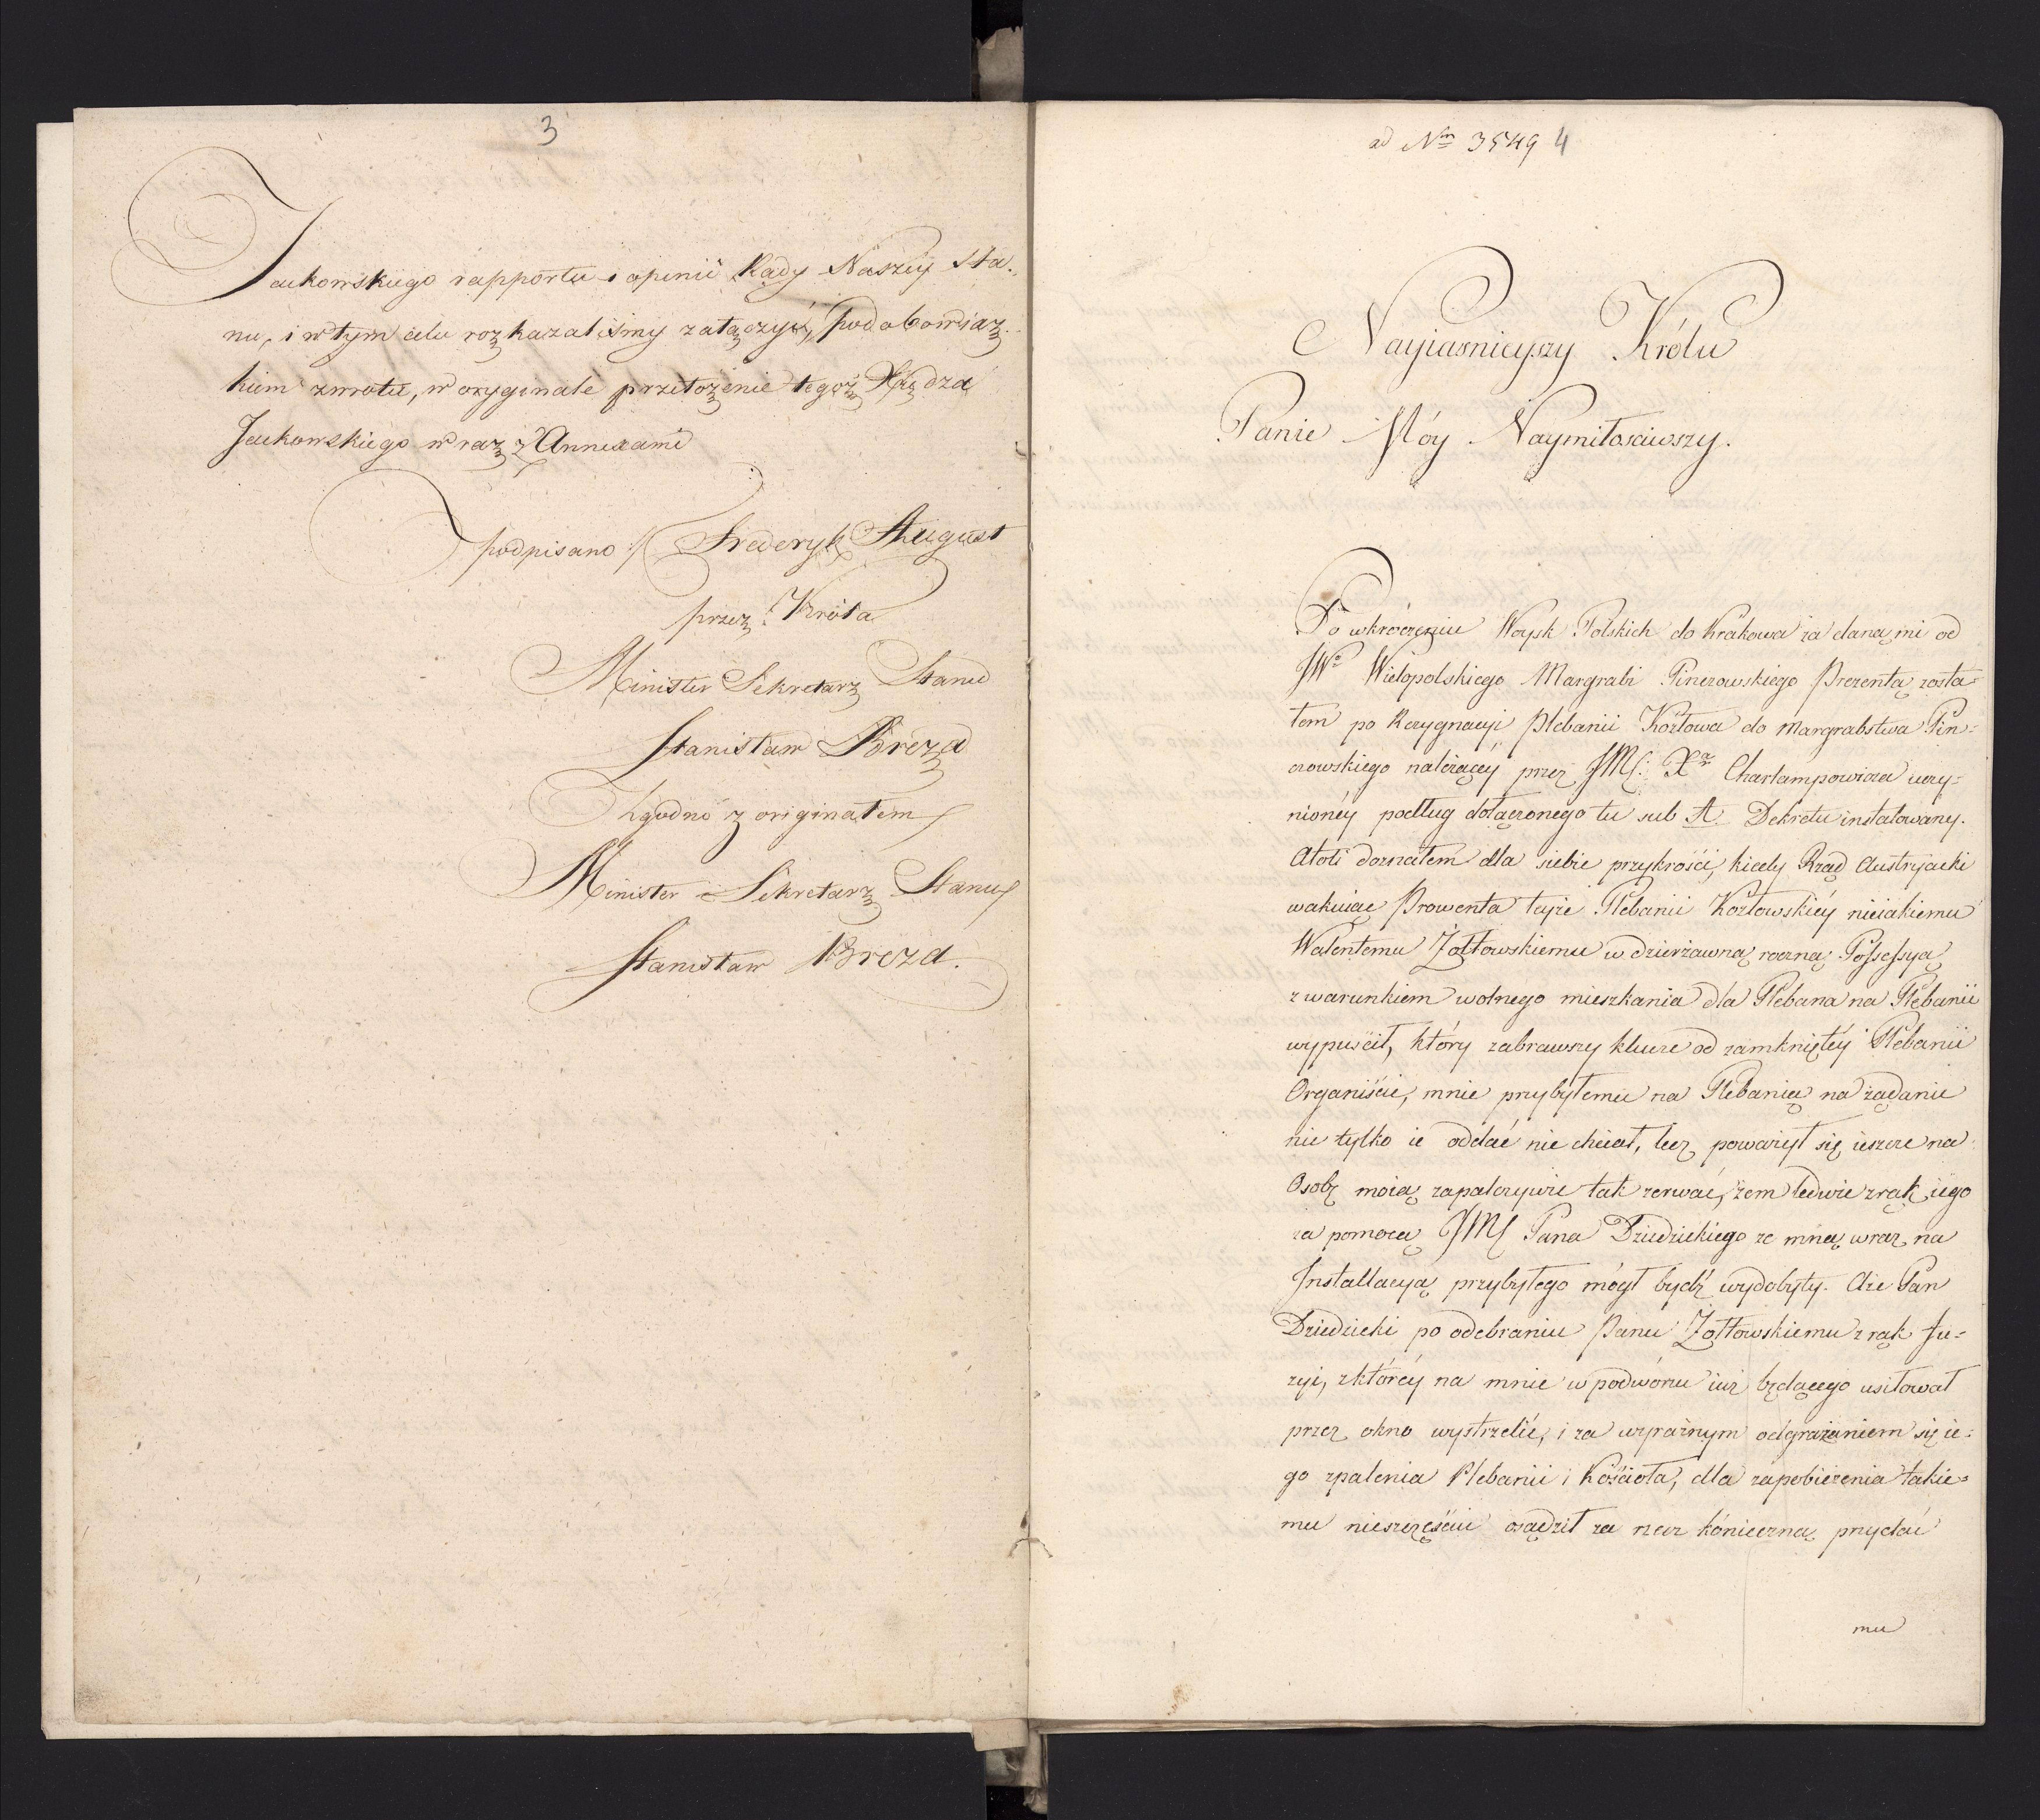 3
Jaukowskiego rapportu i opinii Rady Naszey Sta-
nu, i w tym celu rozkazaliśmy załączyć, pod obowiąz-
kiem zwrotu, w oryginale przełożenie tegoż Xiędza
Jaukowskiego wraz z Annexami
podpisano :/ Frederyk August
przez Króla
Minister Sekretarz Stanu
Stanisław Breza
Zgodno z originałem
Minister Sekretarz Stanu
Stanisław Breza.
ad Nm 3549 4
Nayiasnieyszy Królu
Panie Móy Naymiłosciwszy.
Po wkroczeniu Woysk Polskich do Krakowa za daną mi od
JWo Wielopolskiego Margrabi Pinczowskiego Prezentą zosta-
łem po Rezygnacyi Plebanii Kozłowa do Margrabstwa Pin-
czowskiego należącey przez JMς: Xa Charłampowicza uczy-
nionéy podług dołączonego tu sub A. Dekretu instalowany.
Atoli doznałem dla siebie przykrości, kiedy Rząd Austryacki
wakuiące Prowenta teyże Plebanii Kozłowskiéy nieiakiemu
Walentemu Żołtowskiemu w dzierżawną roczną Possessyą
z warunkiem wolnego mieszkania dla Plebana na Plebanii
wypuścił, który zabrawszy klucze od zamkniętéy Plebanii
Organiście, mnie przybyłemu na Plebanią na żądanie
nie tylko ie oddać nie chciał, lecz poważył się ieszcze na
Osobę moią zapalczywie tak zerwać, żem ledwie z rąk iego
za pomocą JMς Pana Dziedzickiego ze mną wraz na
Installacyą przybyłego mógł bydź wydobyty. Aże Pan
Dziedzicki po odebraniu Panu Żołtowskiemu z rąk Fu-
zyi, z któréy na mnie w podwórzu iuż będącego usiłował
przez okno wystrzelić, i za wyraźnym odgrażaniem się ie-
go spalenia Plebanii i Kościoła, dla zapobieżenia takie-
mu nieszczęściu osądził za rzecz kónieczną przydać
mu